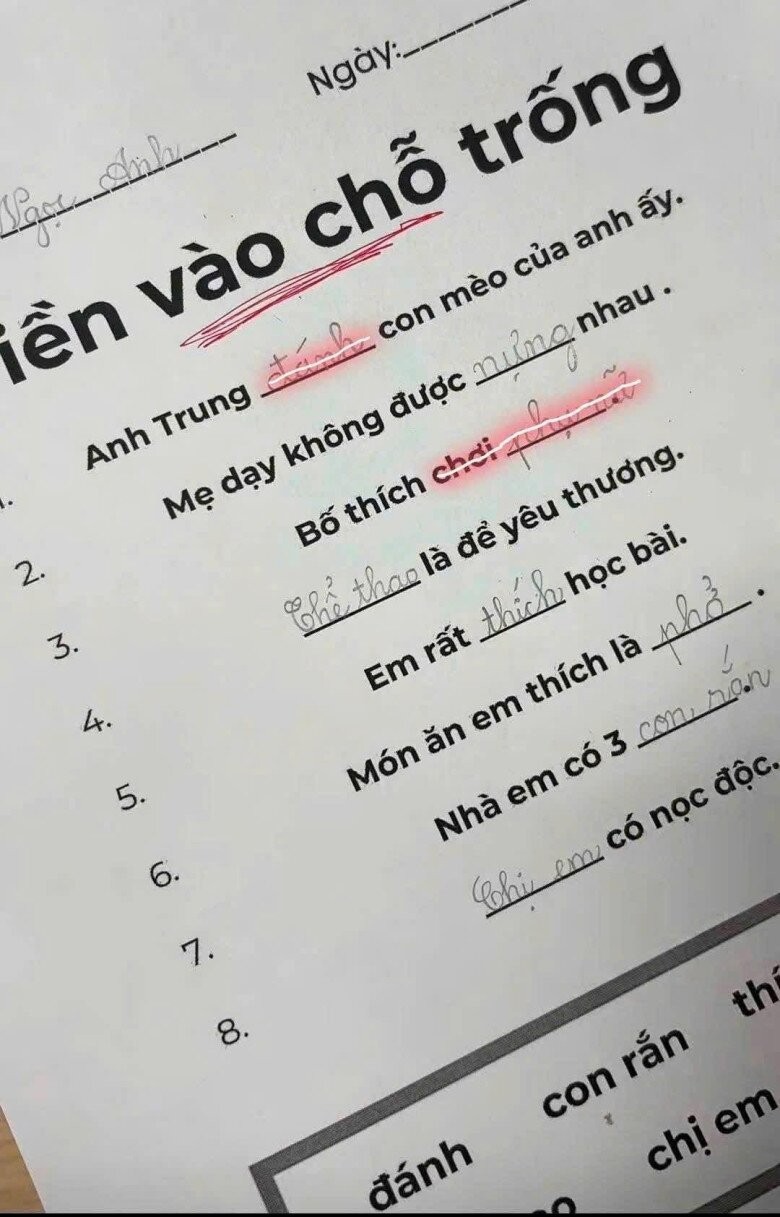 Ngày:
Ngọc Anh
iền vào chỗ trống
1. Anh Trung đánh con mèo của anh ấy.
2. Mẹ dạy không được nựng nhau .
3. Bố thích chơi phụ nữ.
4. Thể thao là để yêu thương.
5. Em rất thích học bài.
6. Món ăn em thích là phở .
7. Nhà em có 3 con rắn.
8. Chị em có nọc độc.
đánh con rắn thí
chị em